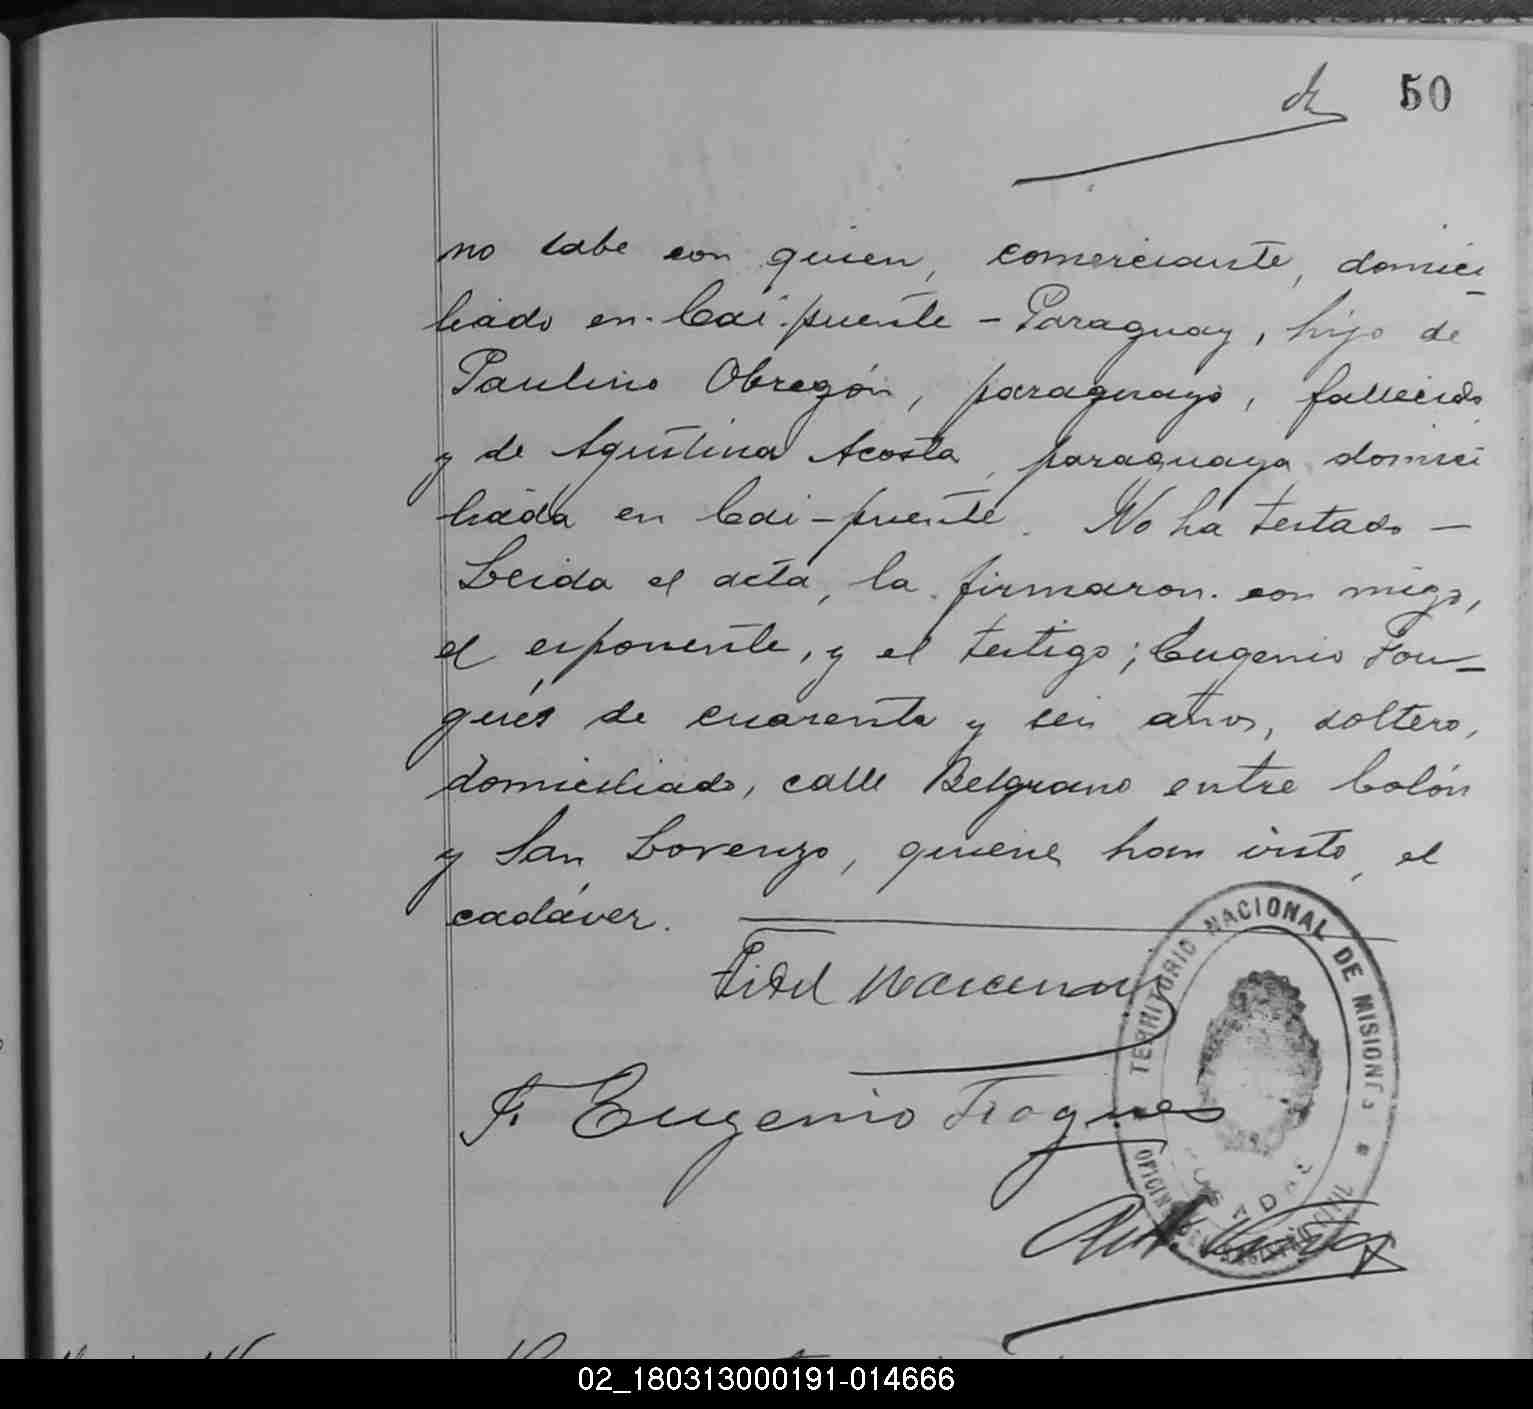 50
no sabe con quien, comerciante, domici-
liado en Cai-puente - Paraguay, hijo de
Paulino Obregón, paraguayo, fallecido
y de Agustina Acosta, paraguaya domici
liada en Cai-puente. No ha testado —
Leida el acta, la firmaron con migo,
el exponente, y el testigo; Eugenio Fou-
qués de cuarenta y seis años, soltero,
domiciliado, calle Belgrano entre Colón
y San Lorenzo, quienes han visto, el
cadáver.
Fidel
F. Eugenio Froques
TERRITORIO NACIONAL DE MISIONES
OFICINA DEL REGISTRO CIVIL
POSADAS
02_180313000191-014666